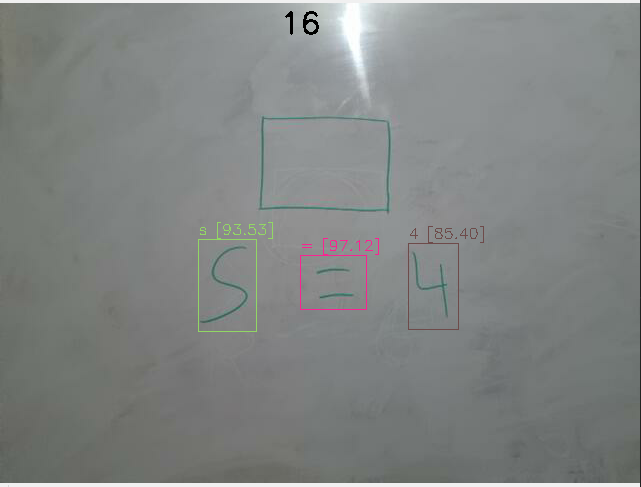 16
s [93.53] = [97.12] 4 [85.40]
S = 4